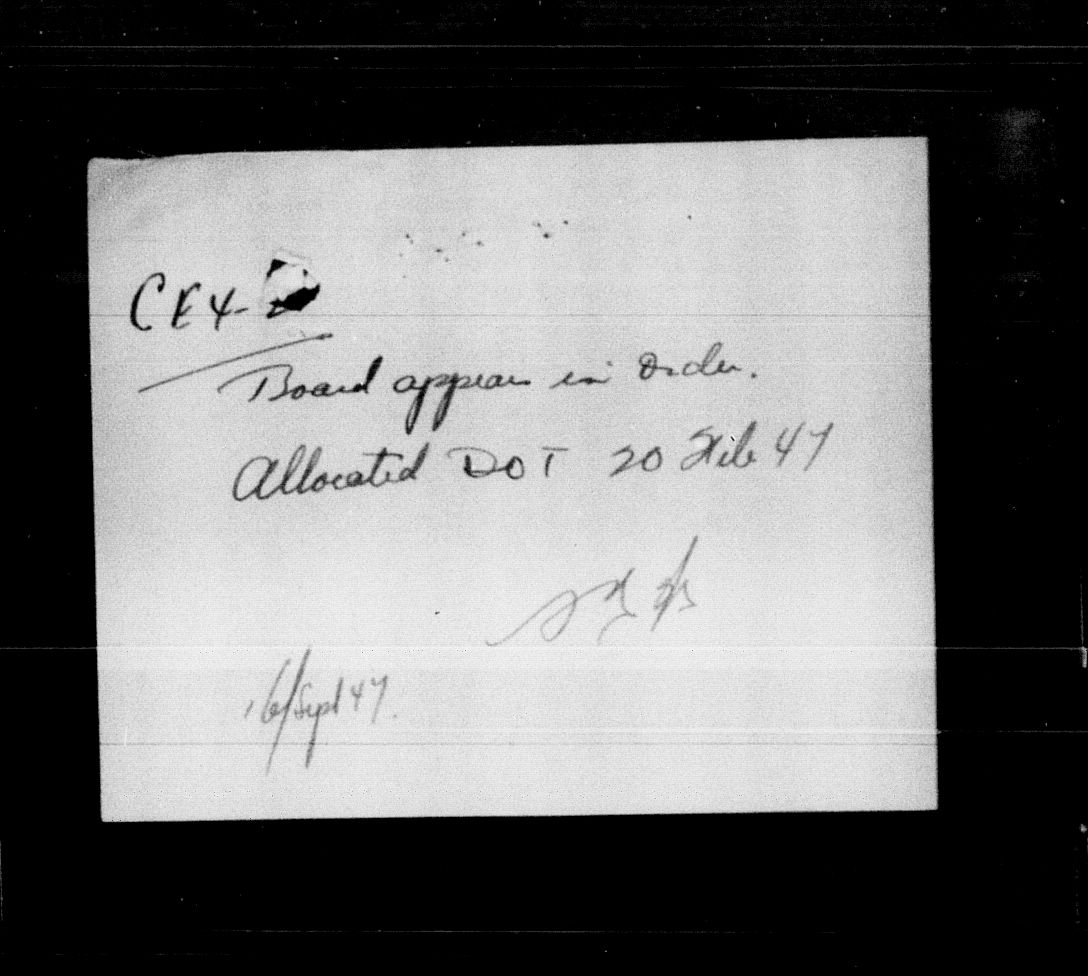 CE4-
Board appears in order.
Allocated DOT 20 Feb 47
16/Sept 47.